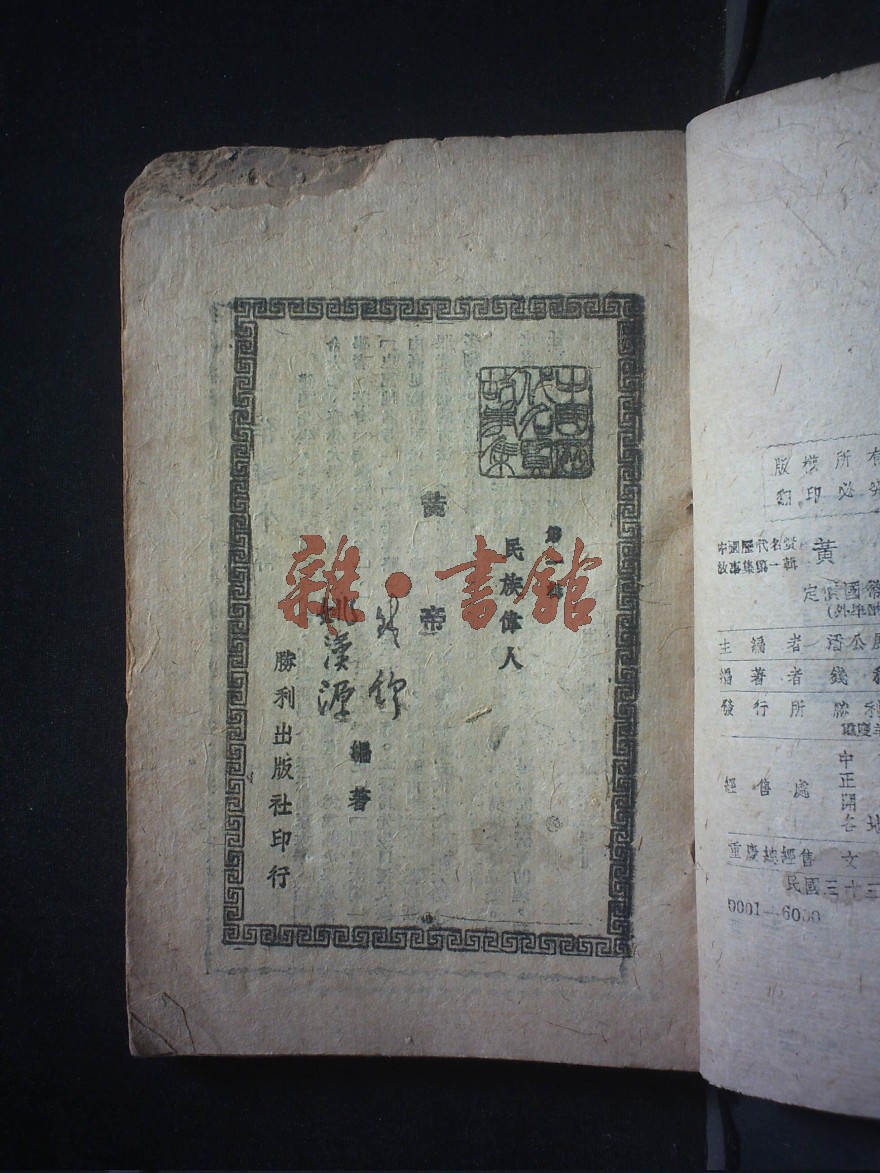 中國歷代名賢故事集
第一輯
民族偉人
黃帝
錢穆
姚漢源
編著
勝利出版社印行
雜·書館
版權所有
翻印必究
中國歷代名賢
故事集第一輯
黃
定價國幣
主編者 潘公展
編著者 錢穆
發行所 勝利
重慶
經售處
中
正
開
各地
重慶總經售 文
民國三十三
0001—6000